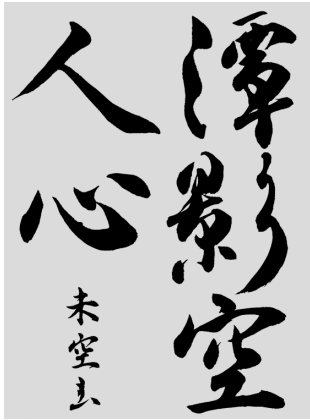 潭影空
人心
未空書